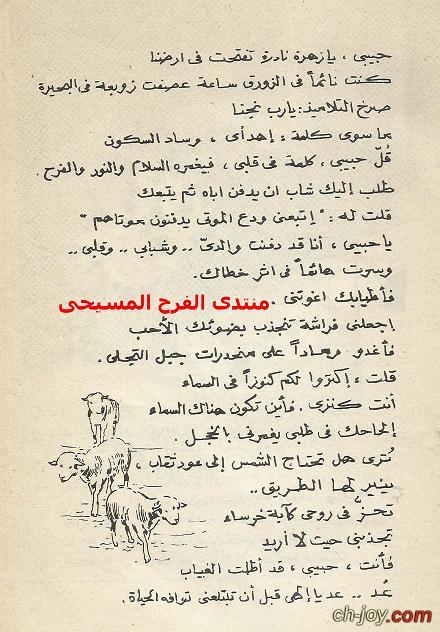 حبيبى ، يا زهرة نادرة تفتحت فى ارضنا
كنت نائماً فى الزورق ساعة عصفت زوبعة فى البحيرة
صرخ التلاميذ: يارب نجنا
بما سوى كلمة : إهدأى ، وساد السكون
قُلّ حبيبى ، كلمة فى قلبى ، فيغمره السلام والنور والفرح.
طلب إليك شاب ان يدفن اباه ثم يتبعك
قلت له : " إتبعنى ودع الموتى يدفنون موتاهم "
يا حبيبى ، أنا قد دفنت والدىّ .. وشبابى .. وقلبى ..
وسرت هائماً فى اثر خطاك.
فأطيابك اغوتنى .
منتدى الفرح المسيحى
إجعلنى فراشة تنجذب بضوئك الأحب
فأغدو رماداً على منحدرات جبل التجلى.
قلت ، إكنزوا لكم كنوزاً فى السماء
أنت كنزى . فأين تكون هناك السماء
إلحاحك فى طلبى يغمرنى بالخجل.
تُرى هل تحتاج الشمس إلى عود ثقاب ،
ينير لها الطريق ..
تحزّ فى روحى كآبة خرساء
تجذبنى حيث لا أريد
فأنت ، حبيبى ، قد أطلت الغياب
عُد .. عد يا إلهى قبل أن تبتلعنى توافه الحياة.
ch-joy.com